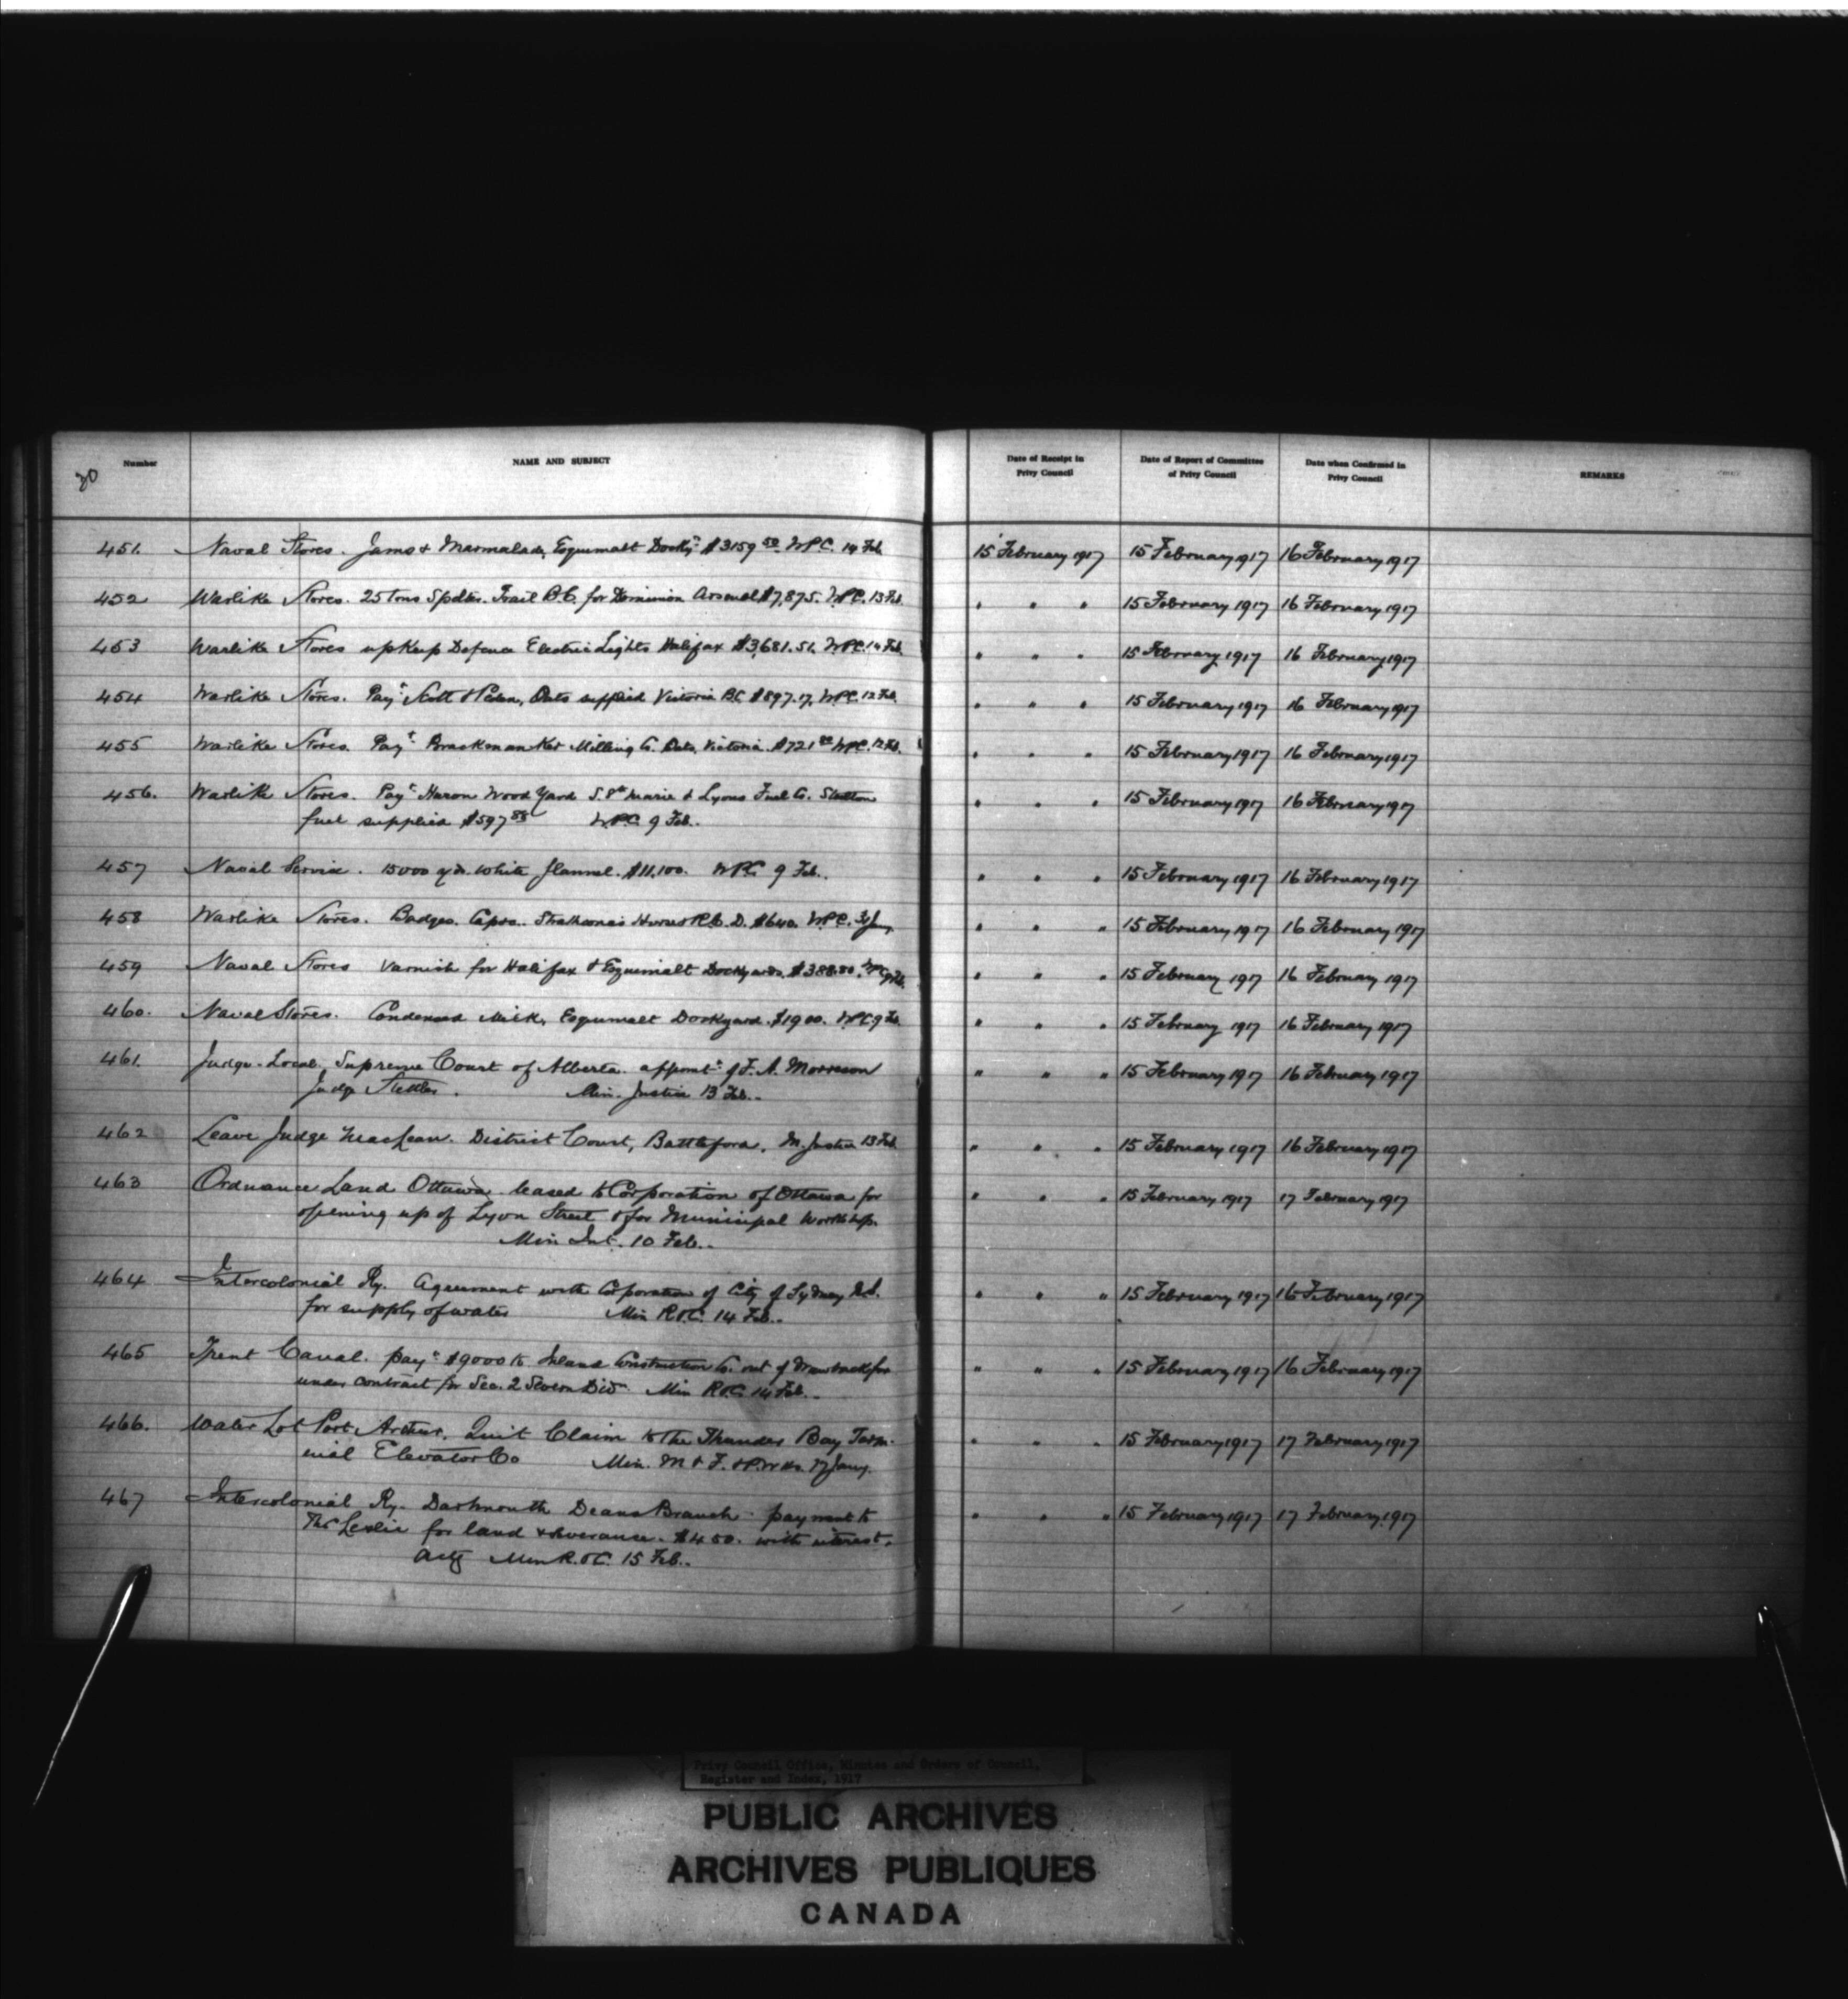 30
Number NAME AND SUBJECT Date of Receipt in Privy Council Date of Report of Committee of Privy Council Date when Confirmed in Privy Council REMARKS
451. Naval Stores. Jams & Marmalade, Esquimalt Docky'd $3159 50 WPC. 14 Feb. 15 February 1917 15 February 1917 16 February 1917
452 Warlike Stores. 25 Tons Spelter. Trail B.C. for Dominion Arsenal $7,875. WPC. 13 Feb. " " " 15 February 1917 16 February 1917
453 Warlike Stores upkeep Defence Electric Lights Halifax $3,681.51. WPC. 14 Feb. " " " 15 February 1917 16 February 1917
454 Warlike Stores. Pay't Scott & Peden, Oats supplied Victoria BC $897.17. WPC. 12 Feb. " " " 15 February 1917 16 February 1917
455 Warlike Stores. Pay't Brackman Ker Milling Co. Oats, Victoria. $721 WPC. 12 Feb. " " " 15 February 1917 16 February 1917
456. Warlike Stores. Pay't Huron Wood Yard S. S'te Marie & Lyons Fuel Co. " " " 15 February 1917 16 February 1917
fuel supplied $597 88 WPC. 9 Feb..
457 Naval Service. 15000 yds. White flannel. $11,100. WPC. 9 Feb.. " " " 15 February 1917 16 February 1917
458 Warlike Stores. Badges. Caps.. Strathcona's Horse & R.C.D. $640. WPC. 31 Jany. " " " 15 February 1917 16 February 1917
459 Naval Stores Varnish for Halifax & Esquimalt Dockyards. $388.80. WPC 9 Feb. " " " 15 February 1917 16 February 1917
460. Naval Stores. Condensed Milk, Esquimalt Dockyard. $1900. WPC 9 Feb. " " " 15 February 1917 16 February 1917
461. Judge - Local, Supreme Court of Alberta. appomt of F. A. Morrison " " " 15 February 1917 16 February 1917
Judge Stettler. Min. Justice 13 Feb..
462 Leave Judge MacLean. District Court, Battleford. M. Justice 13 Feb. " " " 15 February 1917 16 February 1917
463 Ordnance Land Ottawa leased to Corporation of Ottawa for " " " 15 February 1917 17 February 1917
opening up of Lyon Street & for Municipal Workshop.
Min Int. 10 Feb..
464 Intercolonial Ry. Agreement with Corporation of City of Sydney N.S. " " " 15 February 1917 16 February 1917
for supply of water Min R&C. 14 Feb..
465 Trent Canal. pay't $9000 to Inland Construction Co. out of drawback for " " " 15 February 1917 16 February 1917
under contract for Sec. 2 Severn Div'n. Min R&C. 14 Feb..
466. Water Lot Port Arthur. Quit Claim to The Thunder Bay Term- " " " 15 February 1917 17 February 1917
inal Elevator Co Min. M & F. & P. Wks. 17 Jany.
467 Intercolonial Ry. Dartmouth Deans Branch payment to " " " 15 February 1917 17 February 1917
Leslie for land & severance. $450. with interest.
Actg Min R. & C. 15 Feb..
Privy Council Office, Minutes and Orders of Council,
Register and Index, 1917
PUBLIC ARCHIVES
ARCHIVES PUBLIQUES
CANADA